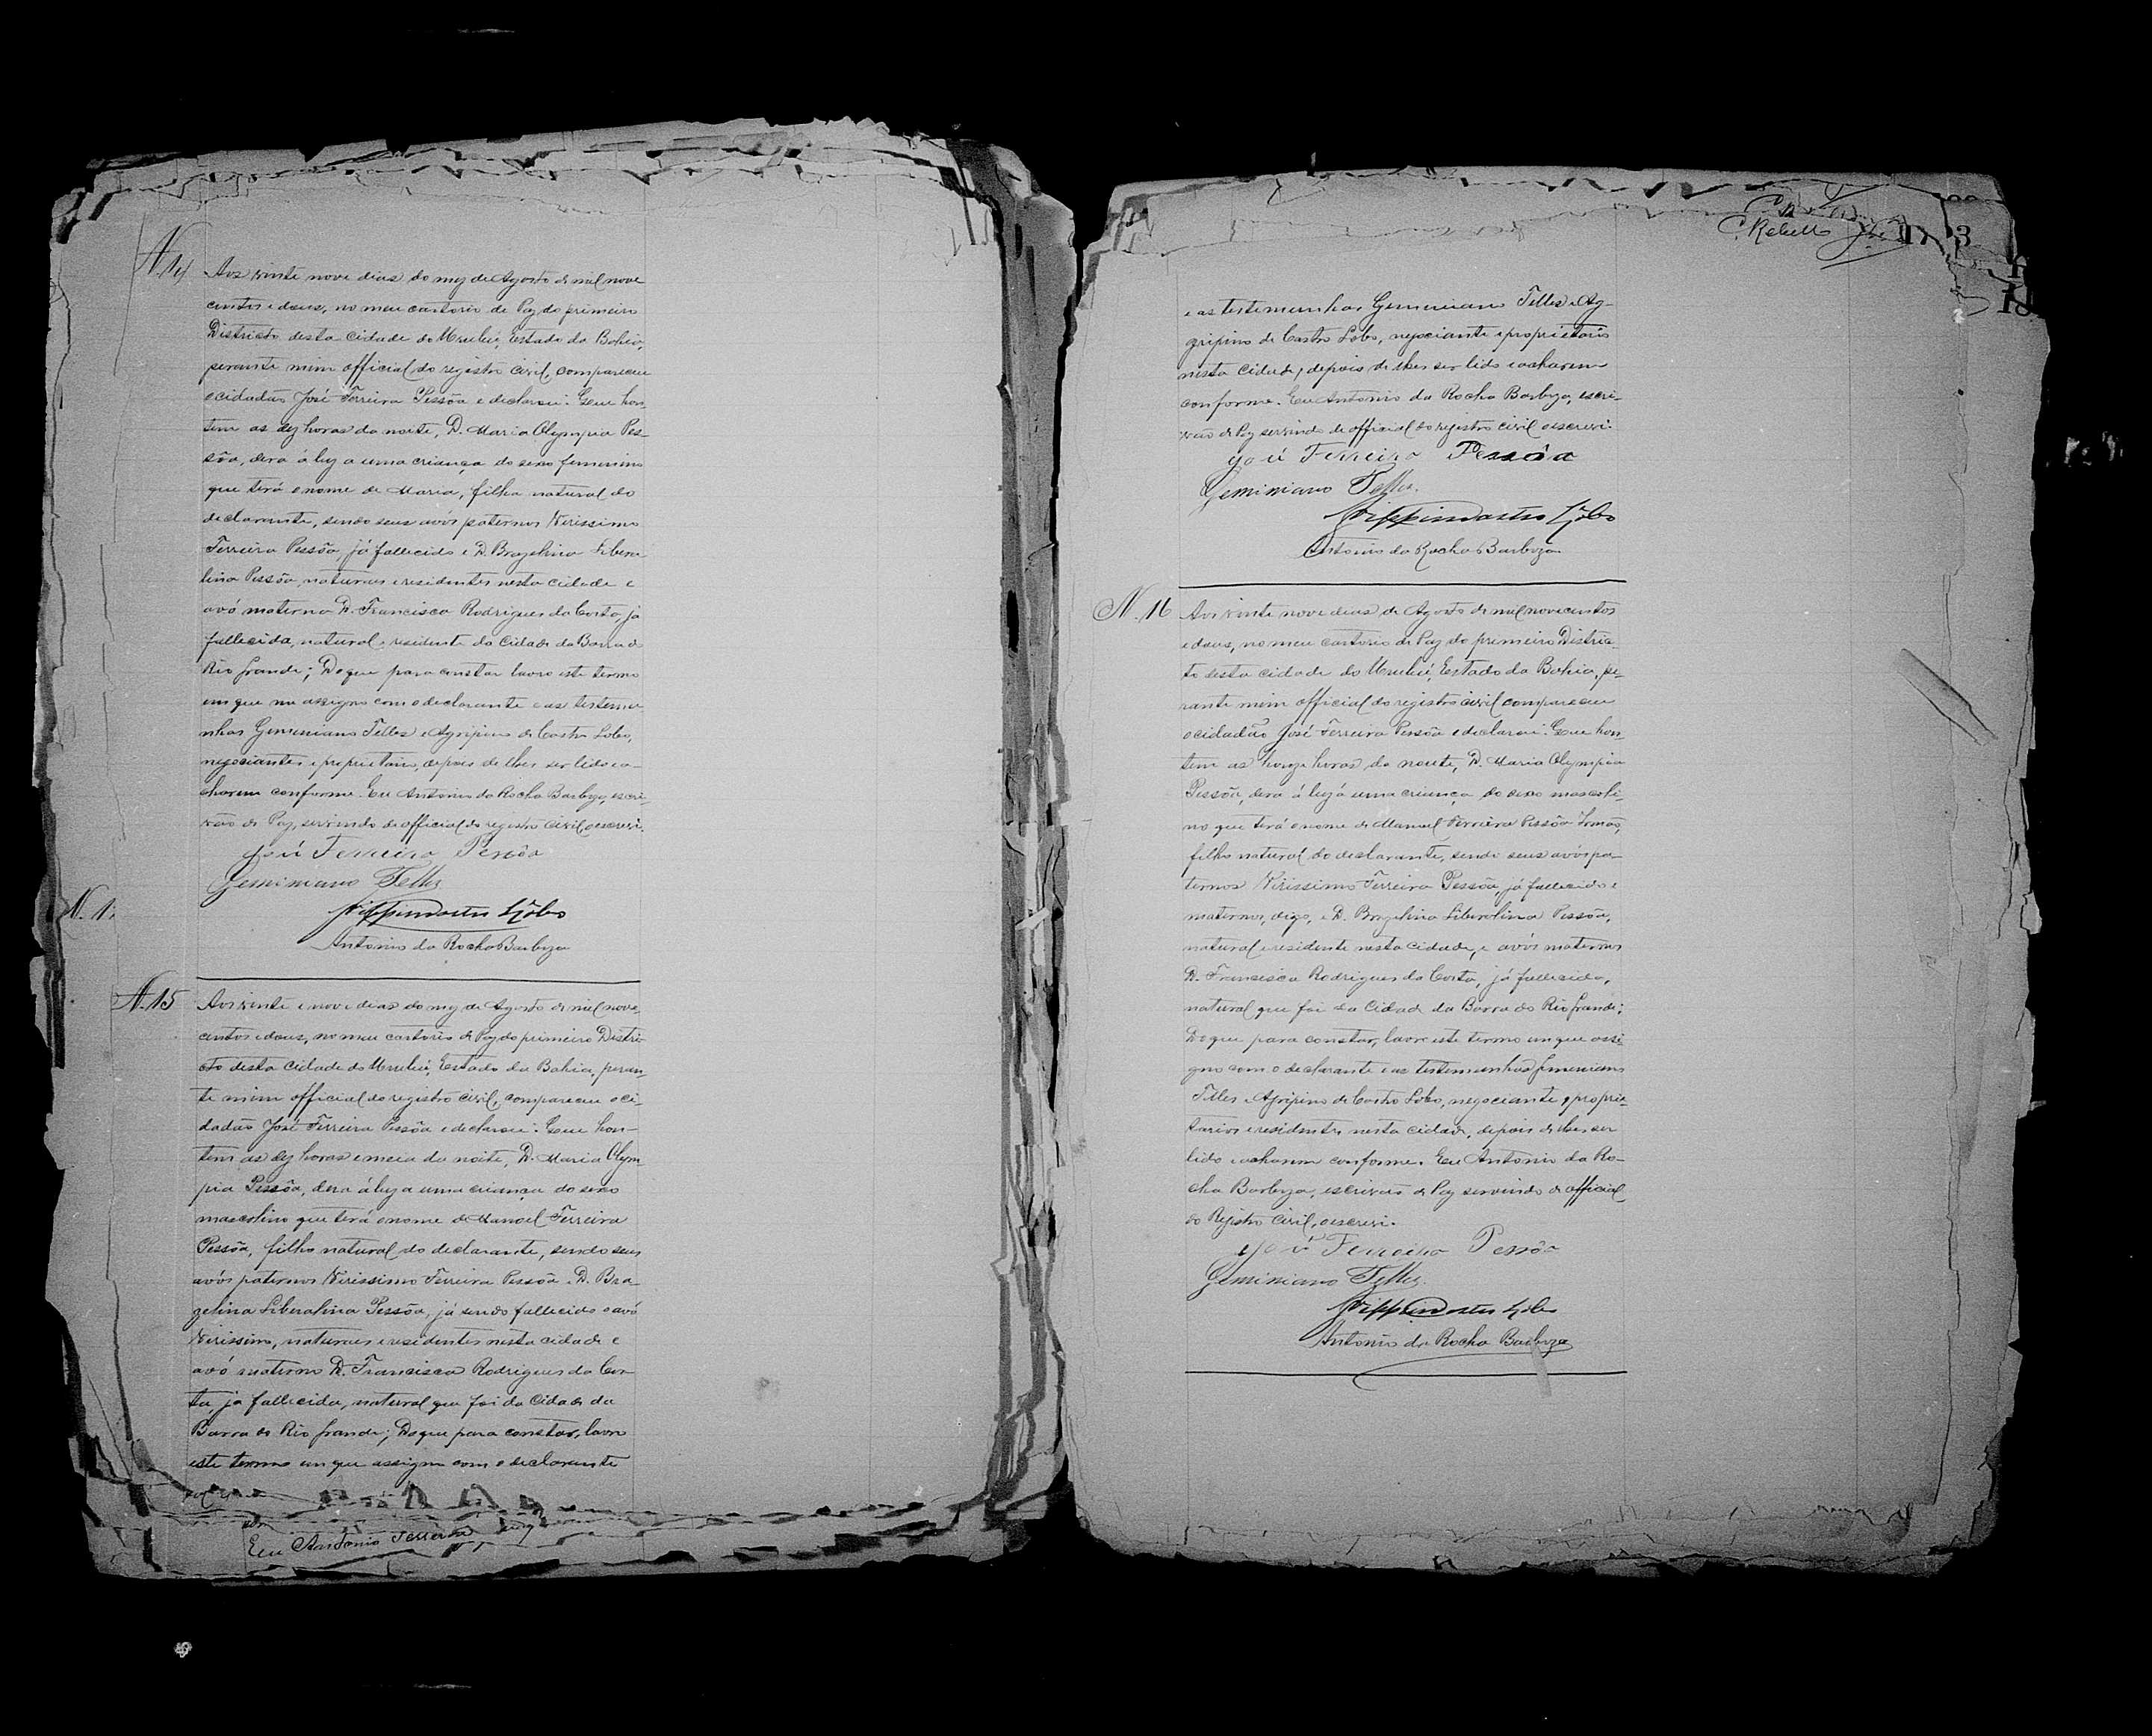 N. 14
Aos vinte nove dias do mez de Agosto de mil nove
centos e dous, no meu cartorio de Paz do primeiro
Districto desta cidade do Urubú, Estado da Bahia,
perante mim official do registro civil, compareceu
o cidadão José Ferreira Pessôa e declarou: Que hon-
tem as dez horas da noite, D. Maria Olympia Pes-
sôa, dera á luz a uma criança do sexo feminino
que terá o nome de Maria, filha natural do
declarante, sendo seus avós paternos Virissimo
Ferreira Pessôa, já fallecido e D. Brazelina Libera
lina Pessôa, naturaes e residentes nesta cidade e
avó materna D. Francisca Rodrigues da Costa, já
fallecida, natural e residente da Cidade da Barra do
Rio Grande; Do que para constar lavro este termo
em que me assigno com o declarante e as testemu-
nhas Geminiano Telles e Agripino de Castro Lobo,
negociantes e proprietario, depois de lhes ser lido e a-
charem conforme. Eu Antonio da Rocha Barboza, escri-
vão de Paz, servindo de official do registro civil o escrevi.
José Ferreira Pessôa
Geminiano Telles
Lôbo
Antonio da Rocha Barboza
N. 15
Aos vinte e nove dias do mez de Agosto de mil nove,
centos e dous, no meu cartorio de Paz do primeiro Distri-
cto desta Cidade do Urubú, Estado da Bahia, peran-
te mim official do registro civil, compareceu o ci-
dadão José Ferreira Pessôa e declarou: Que hon-
tem as dez horas e meia da noite, D. Maria Olym-
pia Pessôa, dera á luz a uma criança do sexo
mascolino que terá o nome de Manoel Ferreira
Pessôa, filho natural do declarante, sendo seus
avós paternos Virissimo Ferreira Pessôa e D. Bra-
zelina Liberalina Pessôa, já sendo fallecido o avô
Virissimo, naturaes e residentes nesta cidade e
avó materna D. Francisca Rodrigues da Cos-
ta, já fallecida, natural que foi da Cidade da
Barra do Rio Grande; Do que para constar, lavro
este termo em que assigno com o declarante
Eu Antonio Ferreira
C. Rabello
e as testemunhas Geminiano Telles e Ag-
gripino de Castro Lobo, negociante e proprietario
nesta Cidade, depois de lhes ser lido e acharem
conforme. Eu Antonio da Rocha Barboza, escri-
vão de Paz servindo de official do registro civil o escrevi.
José Ferreira Pessôa
Geminiano Telles.
Lôbo
Antonio da Rocha Barboza
N. 16
Aos vinte nove dias de Agosto de mil novecentos
e dous, no meu cartorio de Paz do primeiro Distric-
to desta cidade do Urubú, Estado da Bahia, pe-
rante mim official do registro civil compareceu
o cidadão José Ferreira Pessôa e declarou: Que hon-
tem as honze horas da noute, D. Maria Olympia
Pessôa, dera á luz á uma criança do sexo mascoli-
no que terá o nome de Manuel Ferreira Pessôa Irmão,
filho natural do declarante, sendo seus avós pa-
ternos Virissimo Ferreira Pessôa, já fallecido e
maternos, digo, e D. Brazelina Liberolina Pessôa,
natural e residente nesta cidade, e avós maternos
D. Francisca Rodrigues da Costa, já fallecida,
natural que foi da Cidade da Barra do Rio Grande;
Do que para constar, lavro este termo em que assi-
gno com o declarante e as testemunhas Geminiano
Telles e Agripino de Castro Lobo, negociante e proprie-
tarios e residentes nesta cidade, depois de lhes ser
lido e acharem conforme. Eu Antonio da Ro-
cha Barboza, escrivão de Paz servindo de official
do Registro Civil, o escrevi.
José Ferreira Pessôa
Geminiano Telles.
Lôbo
Antonio da Rocha Barboza